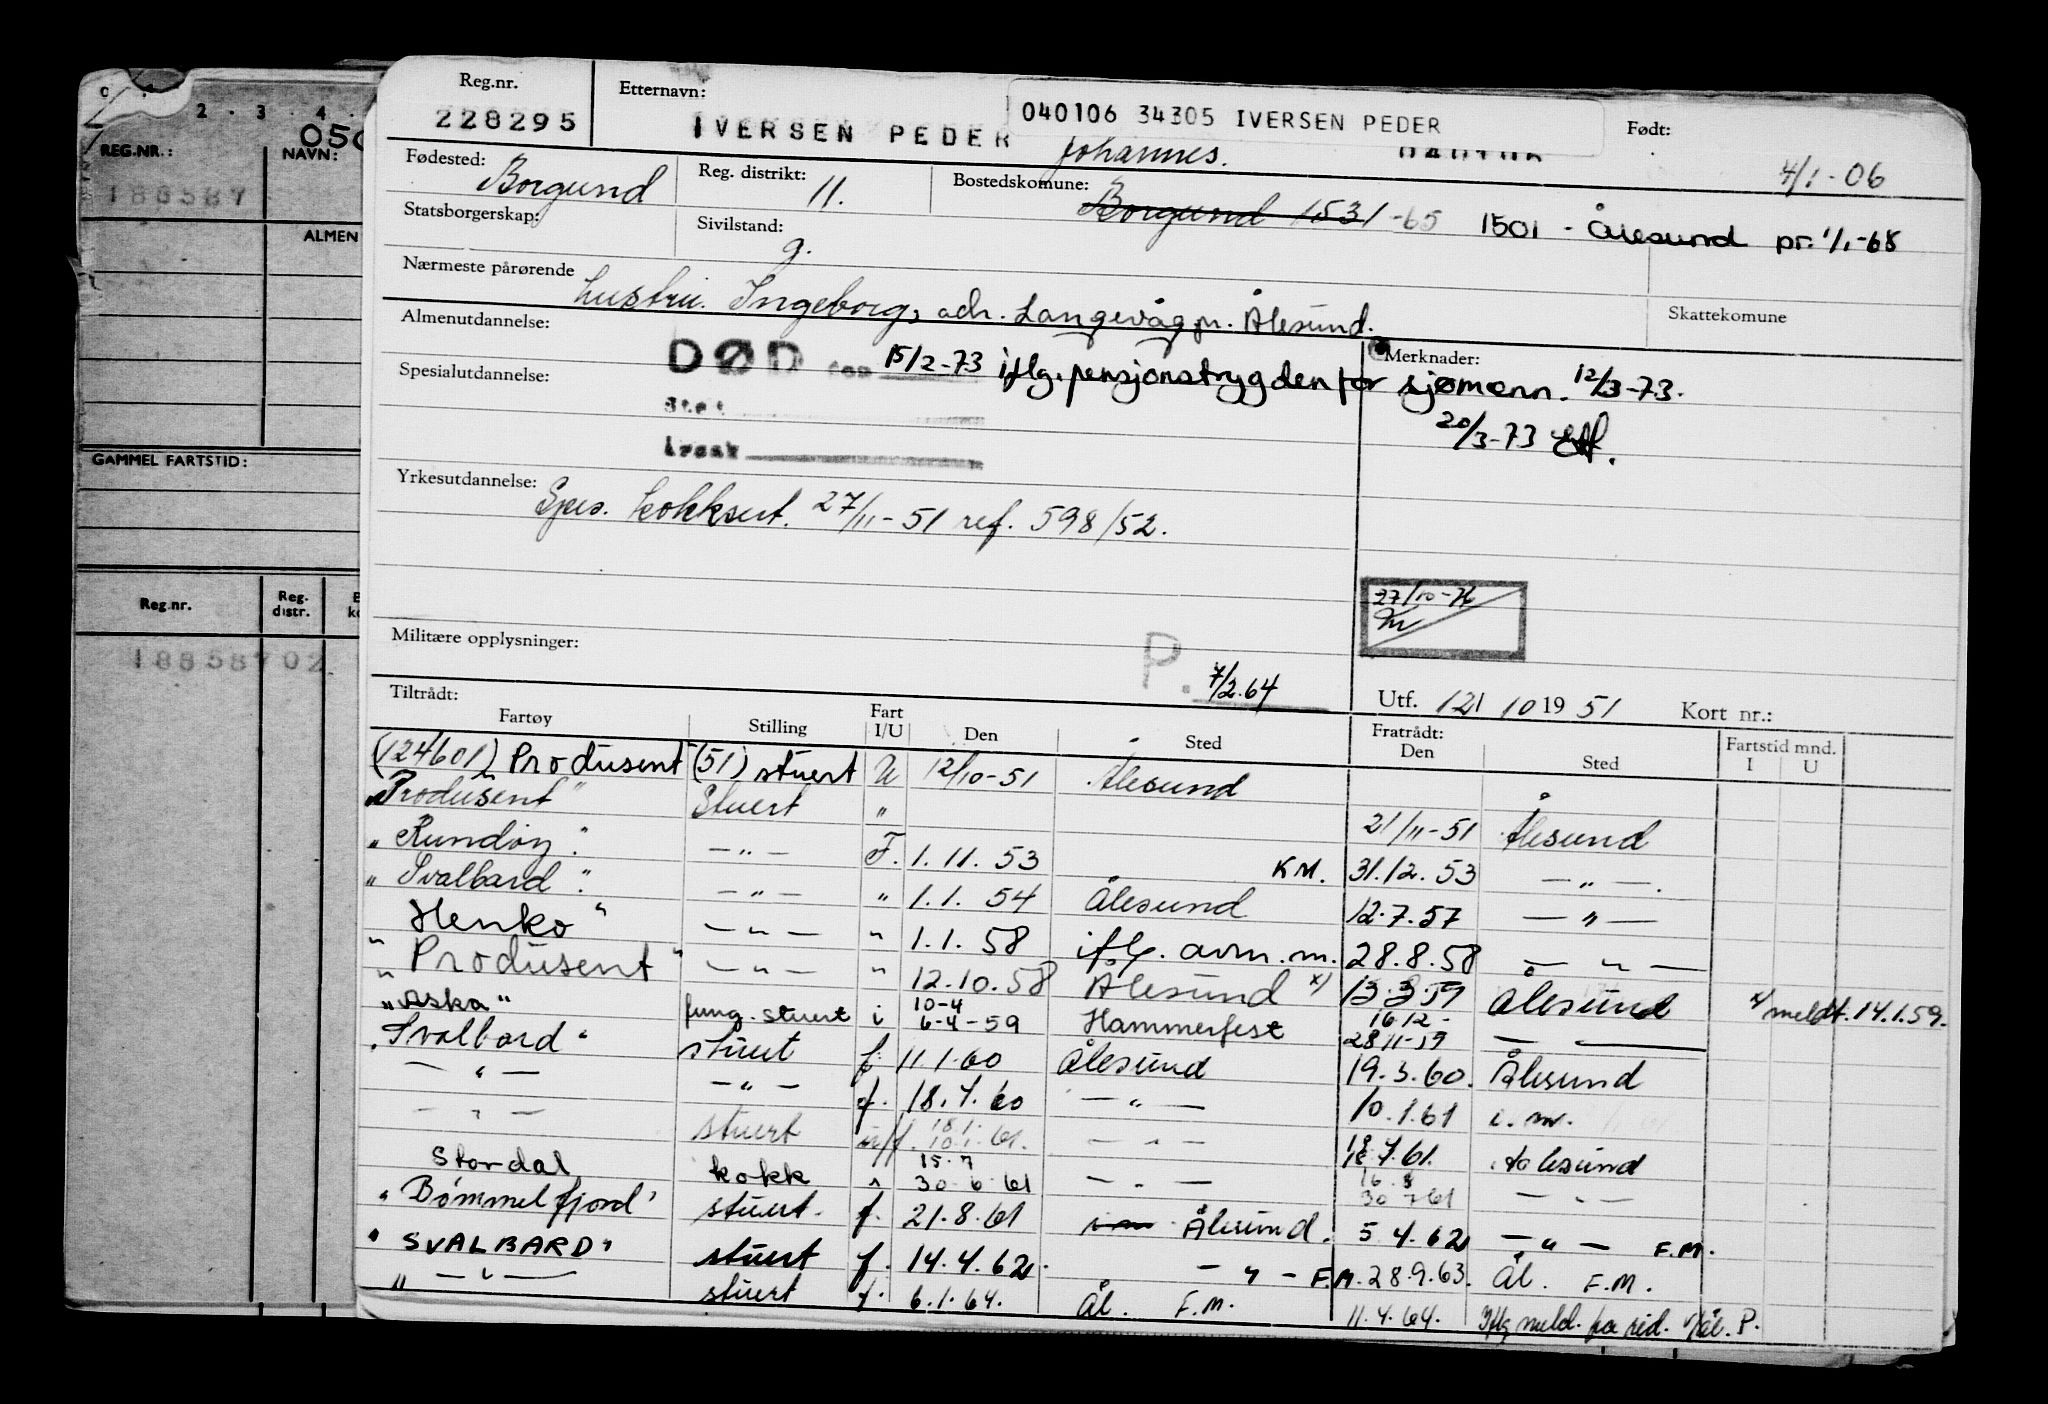 2 . 3 . 4 .
050
REG.NR.: NAVN:
188587
ALMEN
GAMMEL FARTSTID:
Reg.nr. Reg. distr.
18858702
Reg.nr. Etternavn: Født:
228295 IVERSEN PEDER 040106 34305 IVERSEN PEDER
Johannes. 4/1-06
Fødested: Borgund Reg. distrikt: 11. Bostedskomune: Borgund 1531 -65 1501 - Ålesund pr. 1/1-68
Statsborgerskap: Sivilstand: g.
Nærmeste pårørende hustru. Ingeborg, adr. Langevåg pr. Ålesund. Skattekomune
Almenutdannelse: Merknader:
DØD den 15/2-73 iflg. pensjonstrygden for sjømenn. 12/3-73.
Spesialutdannelse:
Sted 20/3-73
årsak
Yrkesutdannelse: Spes. kokksert. 27/11-51 ref. 598/52.
27/10-76
Militære opplysninger: P. 7/2.64
Tiltrådt: Utf. 12/ 10 19 51 Kort nr.:
Fartøy Stilling Fart I/U Den Sted Fratrådt: Den Sted Fartstid mnd. I U
(124601) Produsent (51) stuert U 12/10-51 Ålesund
"Produsent" Stuert " 21/11-51 Ålesund
"Rundøy" — " — F. 1.11.53 KM. 31.12.53 — " —.
"Svalbard" — " — " 1.1.54 Ålesund 12.7.57 — " —
Henko" — " — " 1.1.58 iflg. avm. m. 28.8.58 — " —
"Produsent" — " — " 12.10.58 Ålesund x) 13.3.59 Ålesund x/ meldt. 14.1.59.
"Aska" fung. stuert i 10-4 6-4-59 Hammerfest 16 12 - 28 11-59 —
"Svalbard" stuert f. 11.1.60 Ålesund 19.3.60. Ålesund
— " — — " — f. 18.4.60 — " — 10.1.61 i. m.
— " — stuert 18.1. 10.1.61. — " — 18.4.61. Ålesund
Stordal kokk 15.7 30.6.61 — " — 16.8 30 7 61 — " —
"Bømmelfjord" stuert. f. 21.8.61 Ålesund. 5.4.62 — " — F.M.
"SVALBARD" stuert f. 14.4.62. — " — F.M. 28.9.63. Ål. F.M.
" — " — stuert f. 6.1.64. Ål. F.M. 11.4.64. Iflg meld. fra red. Ål. P.